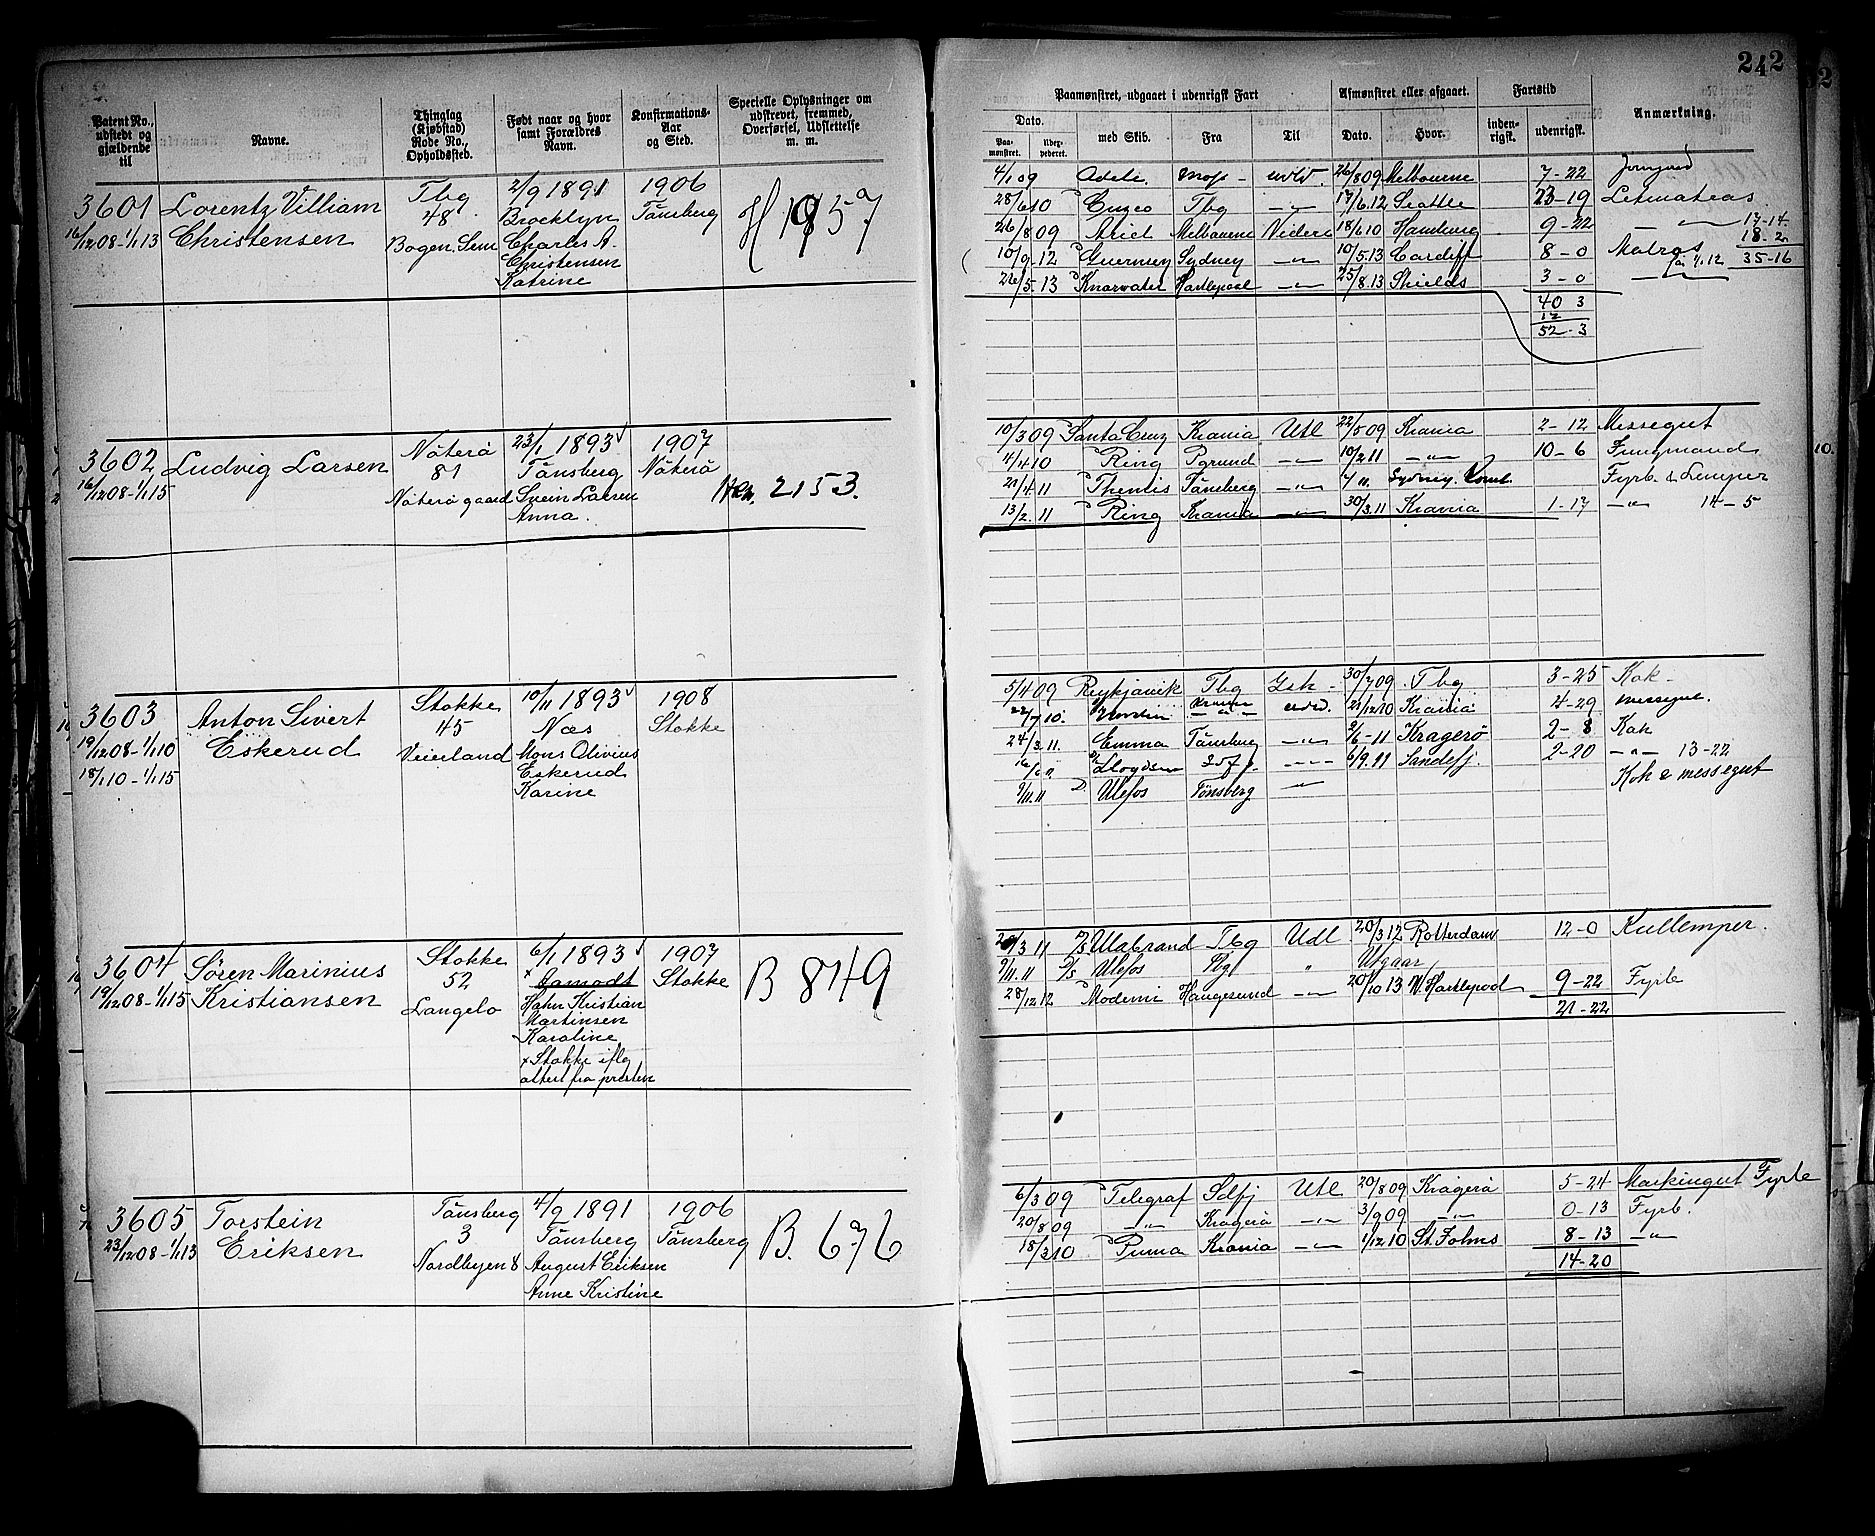 242
Patent No., udstedt og gjældende til
Navne.
Thinglag (Kjøbstad) Rode No., Opholdssted.
Født naar og hvor samt Forældres Navn.
Konfirmations- Aar og Sted.
Specielle Oplysninger om udstrevet, fremmed, Overførsel, Udslettelse m. m.
Paamønstret, udgaaet i udenrigsk Fart
Afmønstret eller afgaaet.
Fartstid
Anmærkning.
Dato.
med Skib.
Fra
Til
Dato.
Hvor.
inden- rigsk.
udenrigsk.
Paa- mønstret.
3601
16/12 08-1/1 13
Lorentz Villiam
Christensen
Tbg
48
Bogen. Sem
2/9 1891
Brocklyn
Charles A.
Christensen
Katrine
1906
Tånsberg
H 1957
4/1 09 Adele. Moss - 26/8 09 Melbourne 7-22
28/6 10 Cuzco Tbg -"- 17/6.12 Seattle 23-19 Letmatros
26/8 09 Ariel Melbourne Videre 18/6 10 Hamburg 9-22 -"- 17-14
18-2
10/9.12 Guernsey Sydney -"- 10/5.13 Cardiff 8-0 Matros 35-16
26/5.13 Knarvater Hartlepool -"- 25/8.13 Shields 3-0 -"-
40 3
12
52-3
3602
16/12 08-1/1 15
Ludvig Larsen
Nöterö
81
Nöterö gaard
23/1 1893
Tånsberg
Svein Larsen
Anna.
1907
Nöterö
2153.
10/3 09 Santa Cruz Krania Utl 22/5 09 Krania 2-12 Messegut
4/4 10 Ring Pgrund -"- 10/2 11 -"- 10-6 Jungmand
21/4 11 Thentis Tånsberg -"- 7/11. Sydney. Fyrb. & Lemper
13/2.11 Ring Krania -"- 30/3.11 Krania 1-17 -"- 14-5
3603
19/12 08-1/1 10
18/1 10-1/1 15
Anton Sivert
Eskerud
Stokke
45
Veierland
10/11 1893
Næs
Mons Olivius
Eskerud
Karine
1908
Stokke
5/4 09 Reykjavik Tbg Ish - 30/7 09 Tbg 3-25 Kok -
22/7 10. Krania 21/12 10 Krania 4-29 Messegut.
24/3 11. Emma Tånsberg -"- 2/6-11 Kragerö 2-8 Kok
6/9.11 Sandefj. 2-20 -"- 13-22
9/11.11 Ulefos Tønsberg -"- Kok & messegut
3604
19/12 08-1/1 15
Sören Marinius
Kristiansen
Stokke
52
Langelo
6/1 1893
x Aamodt
Hahn Kristian
Martinsen
Karoline
x Stokke iflg
attest fra presten
1907
Stokke
B 849
20/3 11 D/S Ulabrand Tbg Udl 20/3 12 Rotterdam 12-0 Kullemper.
9/11.11 D/S Ulefos Tbg " Utgaar
28/12 12 Modemi Haugesund -"- 20/10 13 W. Hartlepool 9-22 Fyrb
21-22
3605
23/12 08-1/1 13
Torstein
Eriksen
Tånsberg
3
Nordbyen 8
4/9 1891
Tånsberg
August Eriksen
Anne Kristine
1906
Tånsberg
B. 676
6/3 09 Telegraf Sdfj Utl 20/8 09 Kragerö 5-24 Maskingut Fyrb
20/8 09 -"- Kragerö -"- 3/9 09 -"- 0-13 Fyrb.
18/3 10 Puma Krania -"- 1/12 10 St. Johns 8-13 -"-
14-20